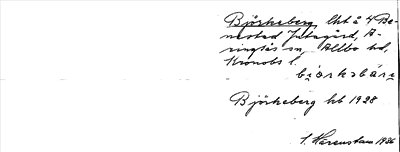 Björkeberg, lht å 4 Be-
nestad Jutagård, A-
ringsås sn, Allbo hd,
Kronobs l.
bjørksbärs
Björkeberg hb 1928
S. Härenstam 1936